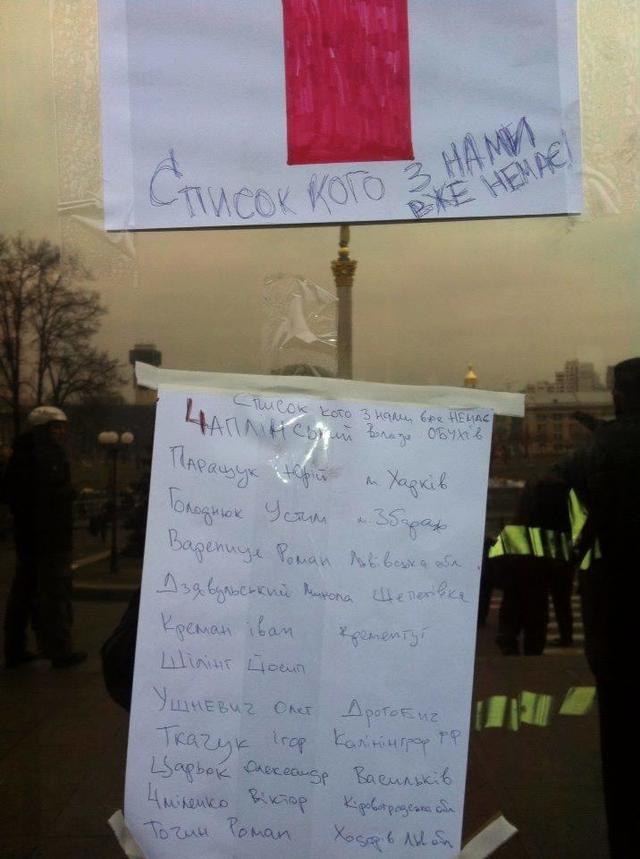 Список кого з нами
вже немає!
Список кого з нами вже немає
Чаплінський Володя Обухів
Паращук Юрій м. Харків
Голоднюк Устим м. Збараж
Варениця Роман Львівська обл.
Дзявульський Микола Шепетівка
Креман іван
Шілінг Йосип
Ушневич Олег Дрогобич
Ткачук ігор Калінінград РФ
Царьок Олександр Васильків
Чміленко Віктор Кіровоградська обл
Точин Роман Ходорів Льв обл